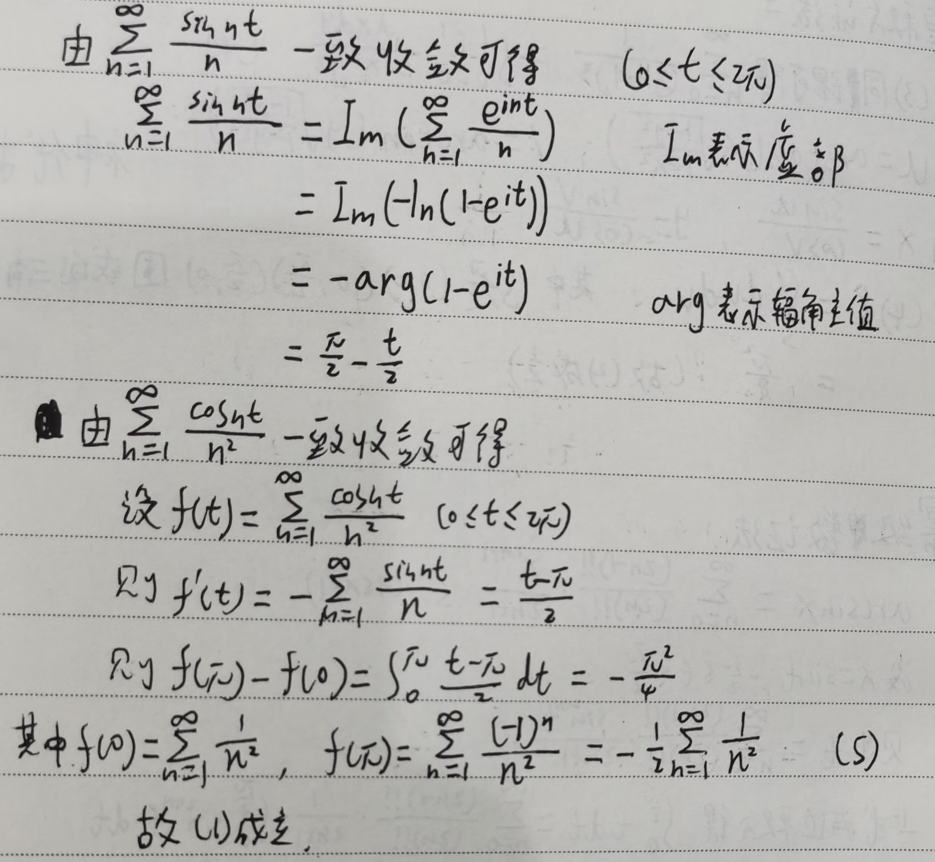 由 ∑_{n=1}^{∞} \frac{sin nt}{n} 一致收敛可得 (0≤t≤2π)
∑_{n=1}^{∞} \frac{sin nt}{n} = Im(∑_{n=1}^{∞} \frac{e^{int}}{n}) Im表示虚部
= Im(-ln(1-e^{it}))
= -arg(1-e^{it}) arg表示辐角主值
= \frac{π}{2} - \frac{t}{2}
由 ∑_{n=1}^{∞} \frac{cosnt}{n^2} 一致收敛可得
设 f(t) = ∑_{n=1}^{∞} \frac{cosnt}{n^2} (0≤t≤2π)
则 f'(t) = -∑_{n=1}^{∞} \frac{sinnt}{n} = \frac{t-π}{2}
则 f(π) - f(0) = ∫_0^π \frac{t-π}{2} dt = -\frac{π^2}{4}
其中 f(0) = ∑_{n=1}^{∞} \frac{1}{n^2}, f(π) = ∑_{n=1}^{∞} \frac{(-1)^n}{n^2} = -\frac{1}{2}∑_{n=1}^{∞} \frac{1}{n^2} (5)
故(1)成立.